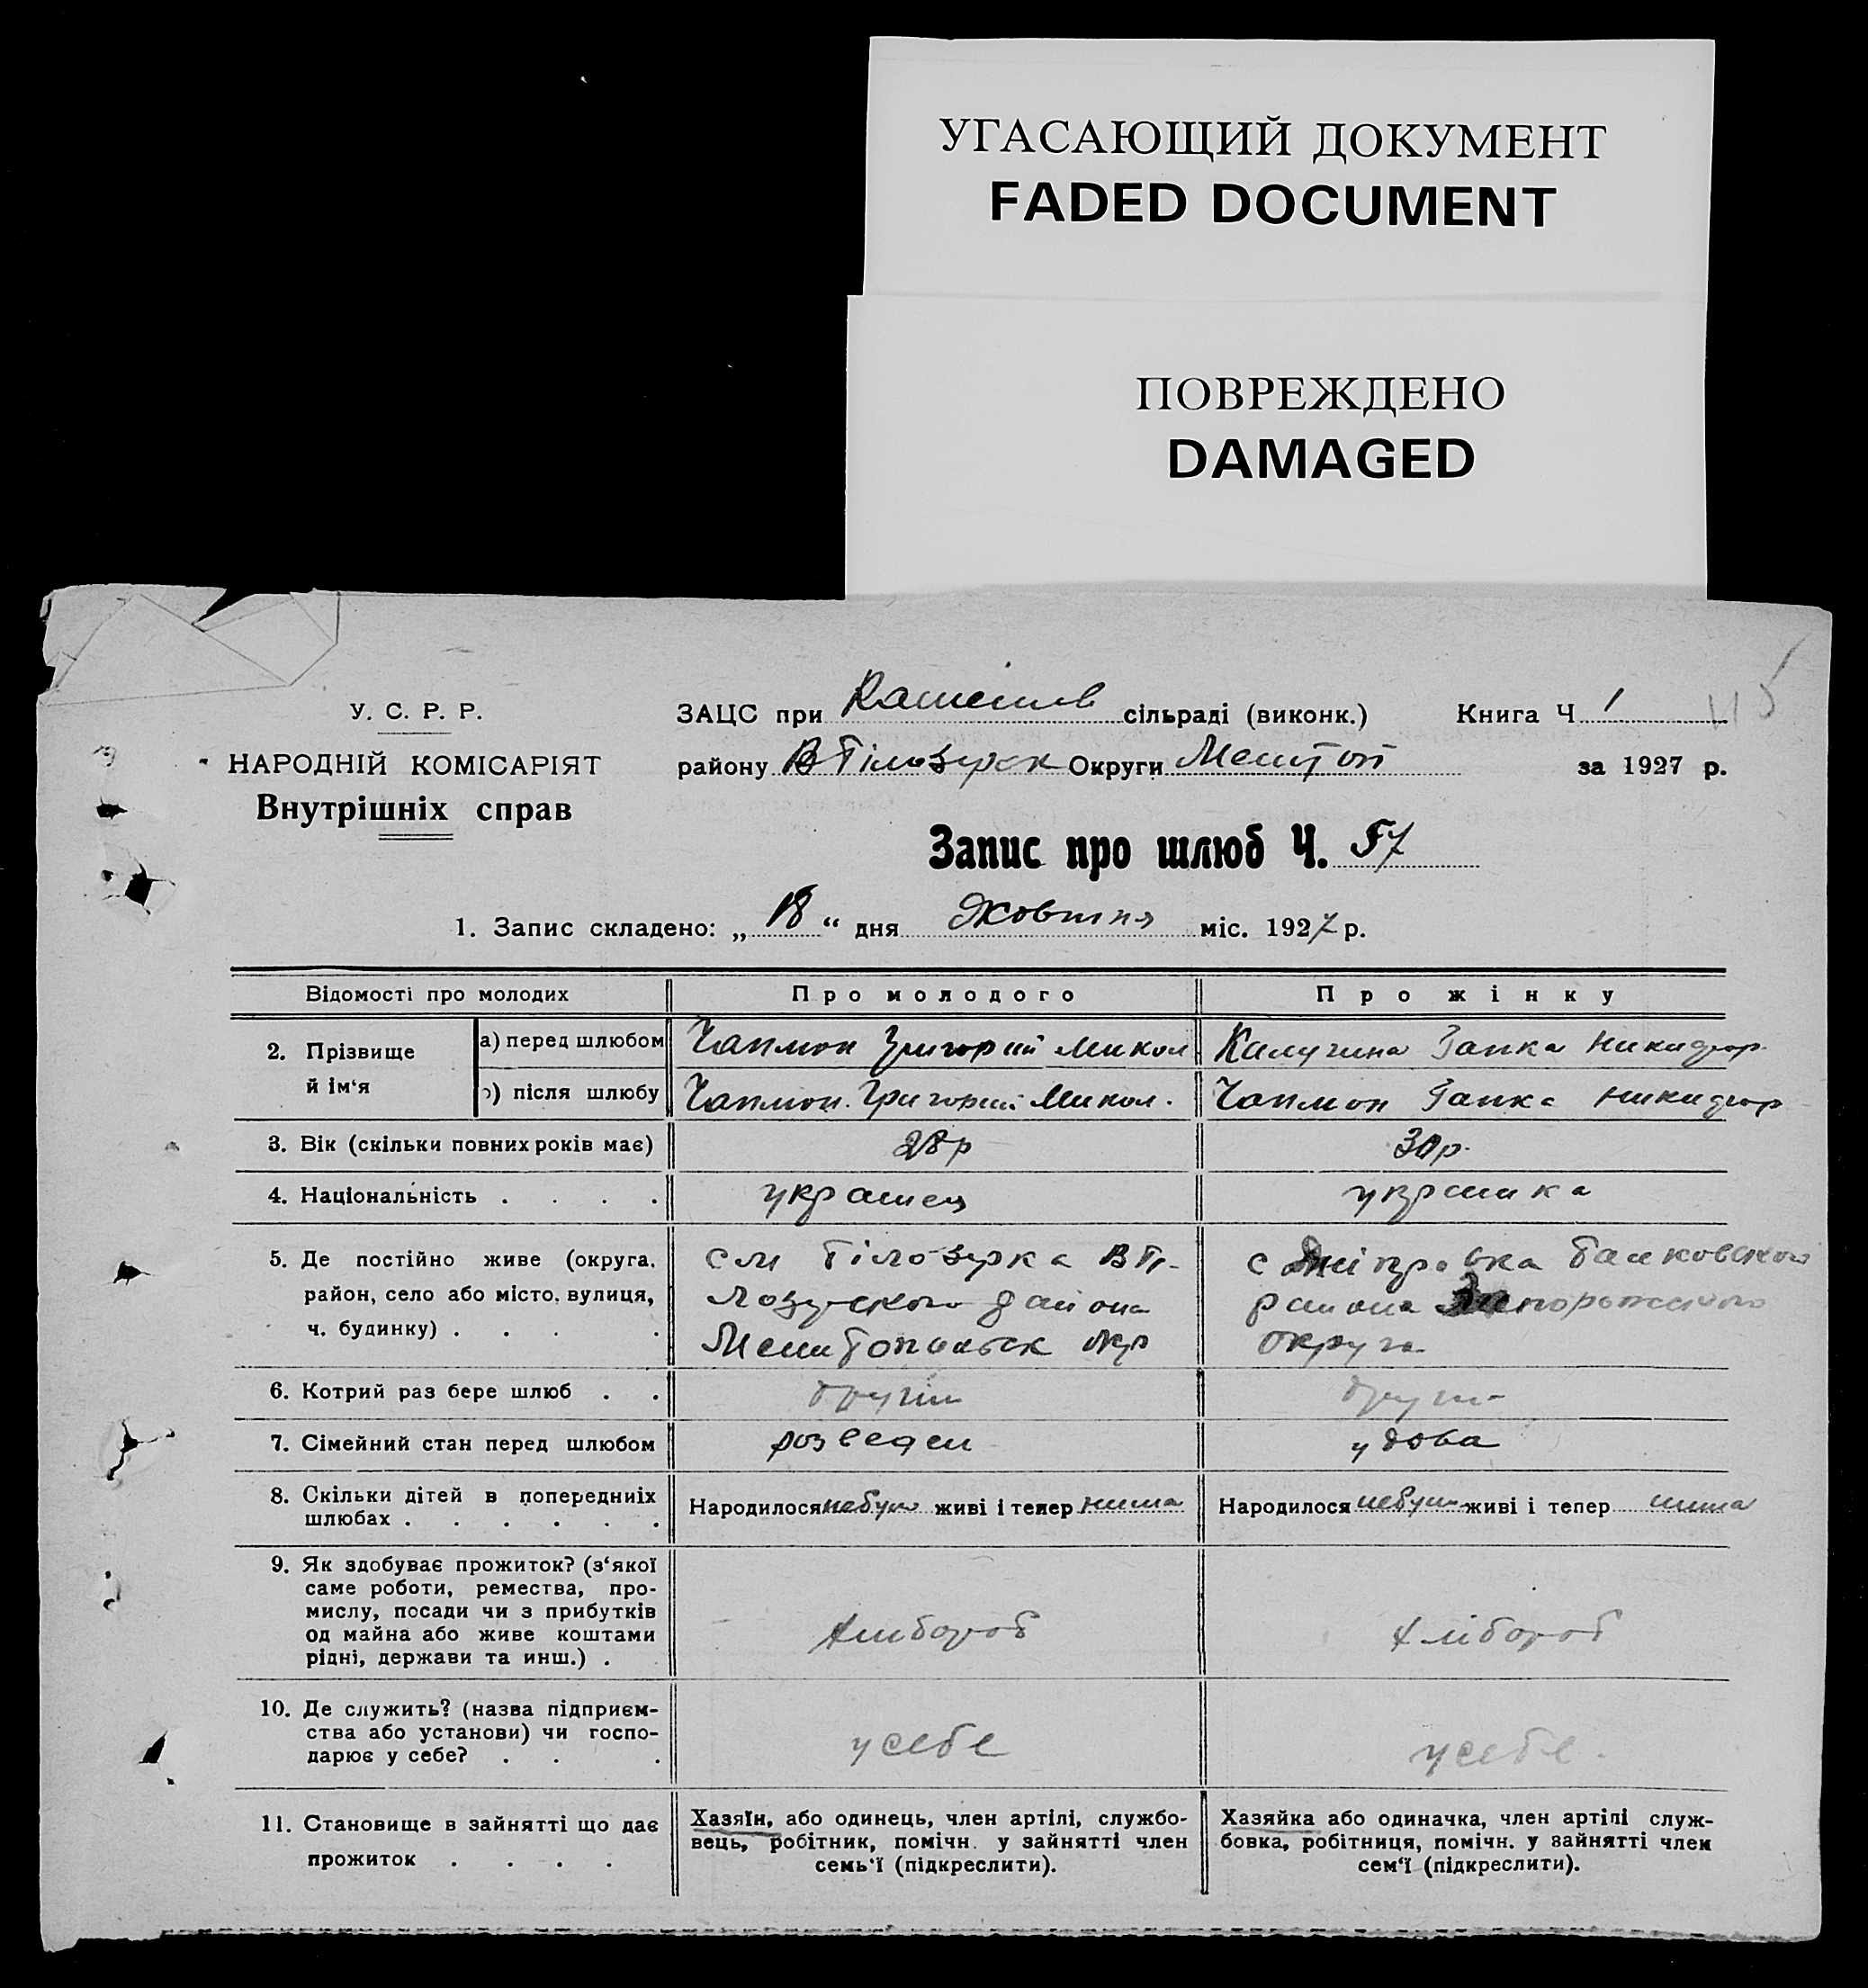 УГАСАЮЩИЙ ДОКУМЕНТ
FADED DOCUMENT
ПОВРЕЖДЕНО
DAMAGED
115
У. С. Р. Р.
НАРОДНІЙ КОМІСАРІЯТ
Внутрішніх справ
ЗАЦС при сільраді (виконк.) Книга Ч 1
району В Білозерск Округи за 1927 р.
Запис про шлюб Ч. 57
1. Запис складено: „ 18 “ дня Жовтня міс. 1927 р.
Відомості про молодих Про молодого Про жінку
2. Прізвище й ім‘я
а) перед шлюбом Чапмон Григорий Микол Ганка Никифор
) після шлюбу Чапмон Григорий Микол. Чапмон Ганка Никифор
3. Вік (скільки повних років має) 28 р 30 р.
4. Національність . . . . украинец украинка
5. Де постійно живе (округа, см Білозерка В Бі- с Дніпровка
район, село або місто, вулиця, лозерского района района Запорожского
ч. будинку) . . . . окр округа
6. Котрий раз бере шлюб . . другий други-
7. Сімейний стан перед шлюбом розведен удова
8. Скільки дітей в попередниіх шлюбах . . . . . . Народилося небуло живі і тепер нима Народилося небуло живі і тепер нима
9. Як здобуває прожиток? (з‘якої
саме роботи, ремества, про-
мислу, посади чи з прибутків
од майна або живе коштами
рідні, держави та инш.) . хлибороб хлібороб
10. Де служить? (назва підприєм-
ства або установи) чи госпо-
дарює у себе? . . . у себе у себе.
11. Становище в зайнятті що дає
прожиток . . . .
Хазяїн, або одинець, член артілі, службо-
вець, робітник, помічн. у зайнятті член
семь‘ї (підкреслити).
Хазяйка або одиначка, член артілі служ-
бовка, робітниця, помічн. у зайнятті член
сем‘ї (підкреслити).